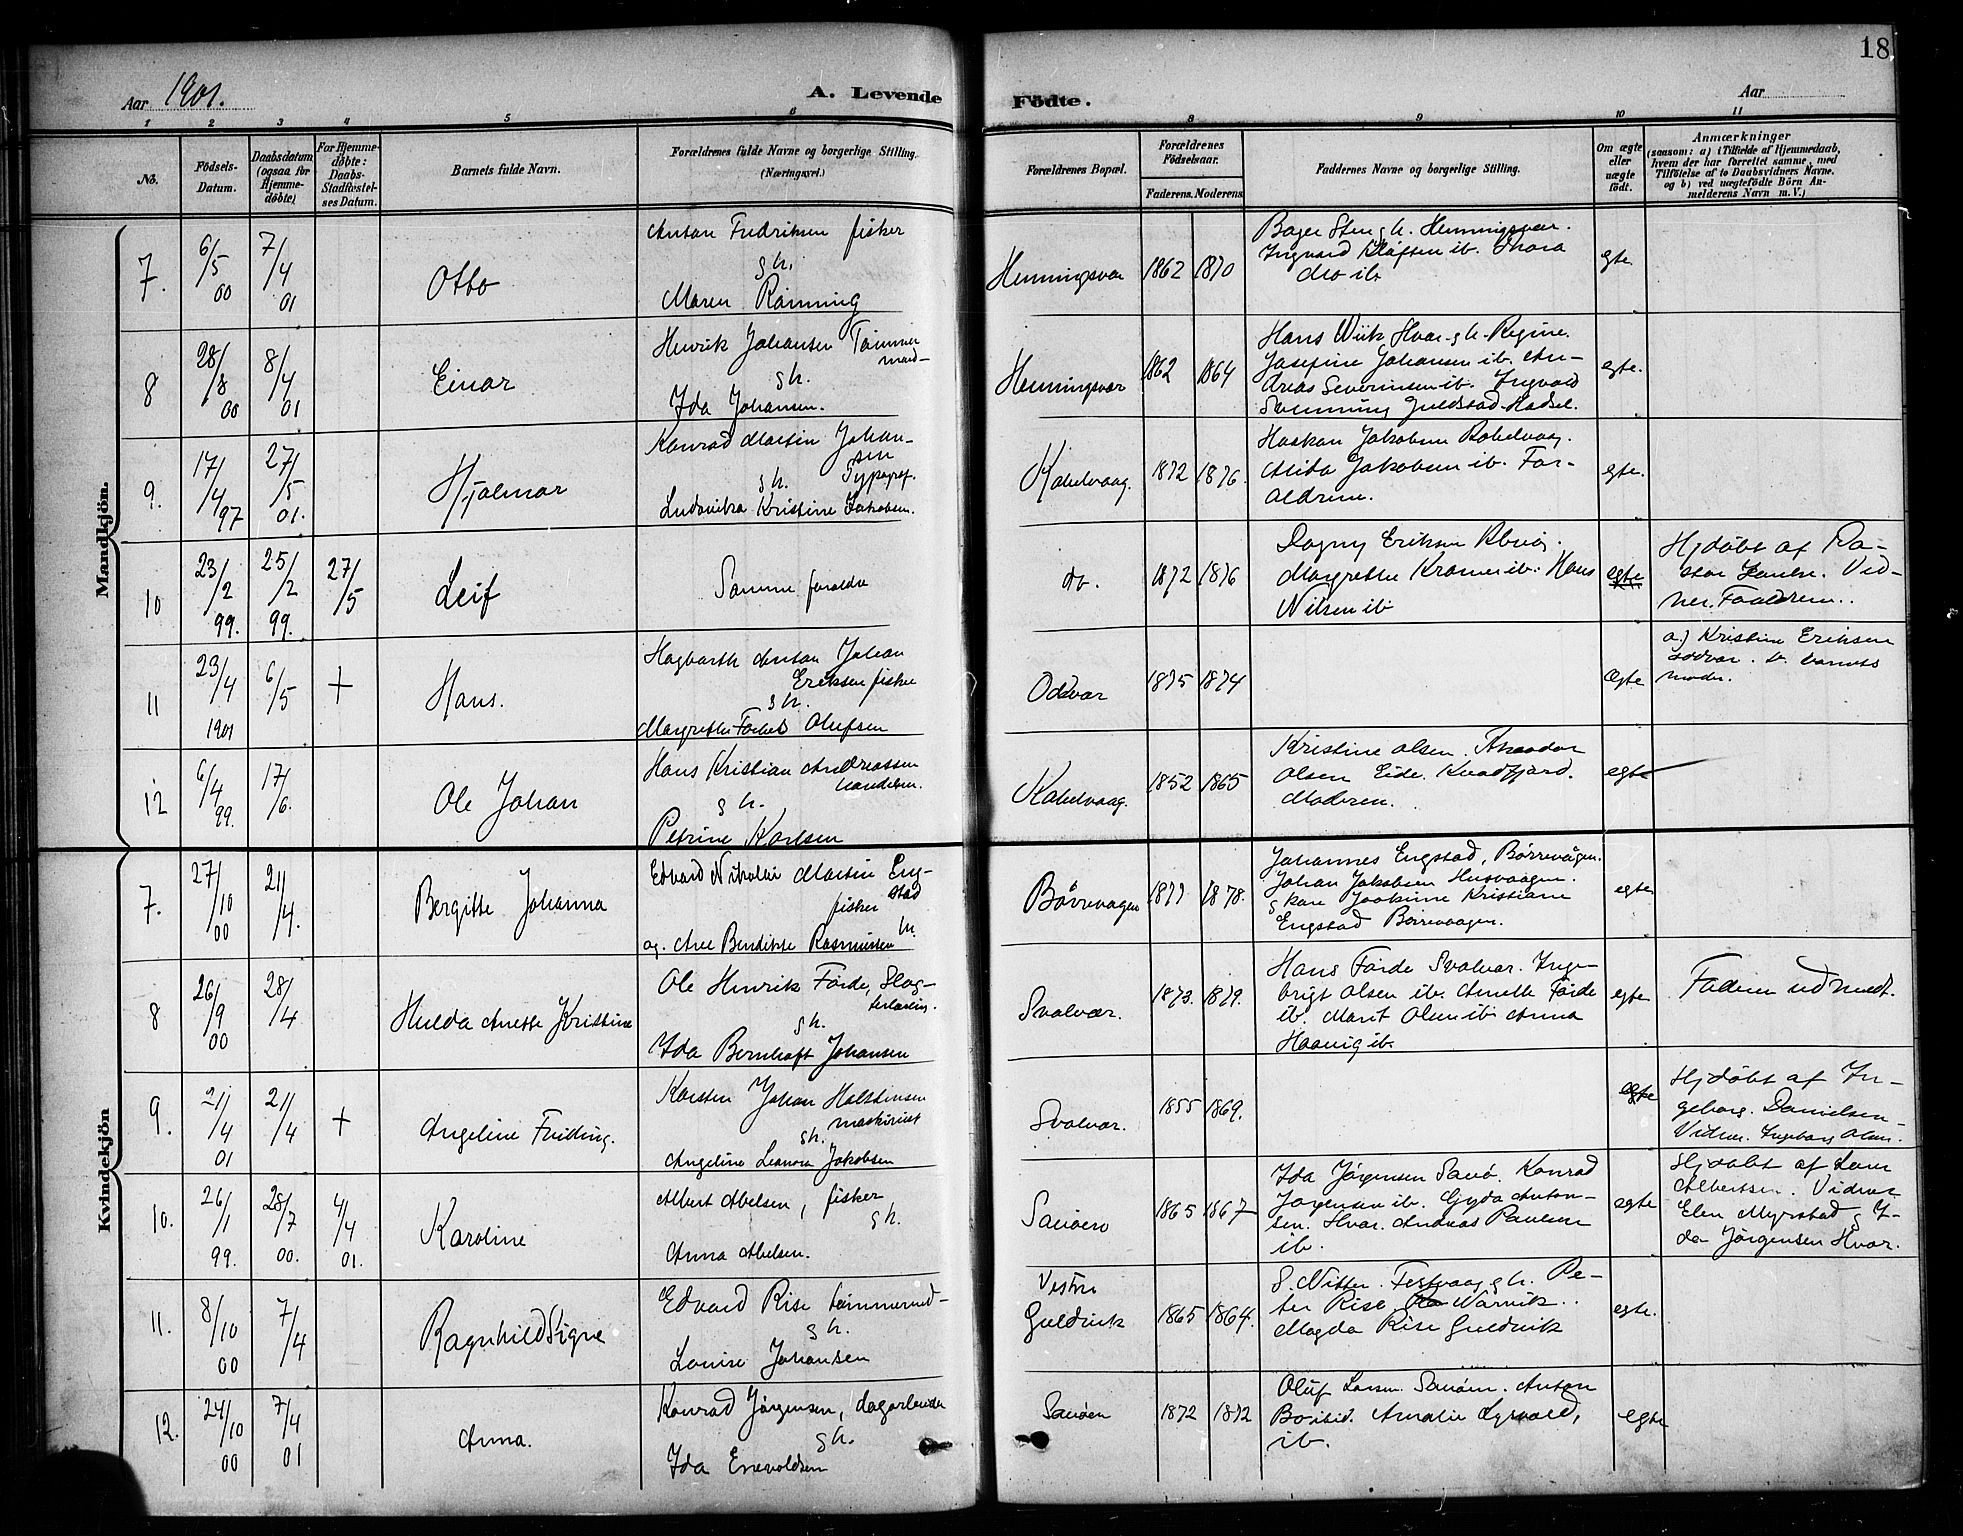 Aar 1901.
A. Levende
Födte.
Aar
18
1 2 3 4 5 6 8 9 10 11
No.
Födsels-
Datum.
Daabsdatum
(ogsaa for
Hjemme-
døbte)
For Hjemme-
døbte:
Daabs-
Stadfæstel-
ses Datum.
Barnets fulde Navn.
Forældrenes fulde Navne og borgerlige Stilling.
(Næringsvei.)
Forældrenes Bopæl.
Forældrenes
Födselsaar.
Faderens. Moderens.
Faddernes Navne og borgerlige Stilling.
Om ægte
eller
uægte
født.
Anmærkninger
(saasom: a) i Tilfælde af Hjemmedaab,
hvem der har forrettet samme, med
Tilföielse af to Daabsvidners Navne.
og b) ved uægtefödte Börn An-
melderens Navn m. V.)
Mandkjön.
7. 6/5 00 7/4 01
Otto
Anton Fredriksen fisker
g h.
Maren Rønning
Henningsvær 1862 1870
Henningsvær.
Ingvard Kløften ib. Thora
do ib.
egte.
8 28/8 00 8/4 01
Einar
Henrik Johansen Tømmer
mand
g h.
Ida Johansen.
Henningsvær 1862 1864
Hans Wiik Hvær. g h. Regine.
Josefine Johansen ib. An-
dreas Severinsen ib. Ingvald
Svenning Guldstad Hadsel.
egte.
9. 17/4 97 27/5 01.
Hjalmar
Konrad Martin Johan-
sen
g h. Typograf.
Ludovika Kristine Jakobsen.
Kabelvaag. 1872 1876.
Haakon Jakobsen Kabelvaag.
Alida Jakobsen ib. For-
ældrene.
egte.
10 23/2 99. 25/2 99. 27/5
Leif
Samme forældre
do. 1872 1876
Dagny Eriksen
Margrethe Kramer ib. Hans
Nilsen ib
egte
Hjdøbt af Pa-
stor Vid-
ner. Forældrene..
11 23/4 1901 6/5 +
Hans.
Hagbarth Anton Johan
Eriksen fisker
g h.
Margrethe Olufsen
Odvær 1875 1874
Ægte
a.) Kristine Eriksen
Odvær. b. barnets
moder.
12 6/4 99. 17/6.
Ole Johan
Hans Kristian Andreassen
handelsm.
g h.
Petrine Karlsen
Kabelvaag. 1852 1865
Kristine Olsen. Theodor
Olsen Eide. Kvædfjord.
Moderen.
egte
Kvindekjön
7. 27/10 00 21/4.
Bergitte Johanna
Edvard Nikolai Martin Eng-
fisker stad
og. Ane Bendikte Rasmussen h.
Børrevaagen 1877 1878.
Johannes Engstad, Børrevågen.
Johan Jakobsen Husvaagen.
g kone Joakime Kristiane
Engstad Børrevaagen.
egte
8 26/9 00 28/4
Hulda Anette Kristine
Ole Henrik Førde, Slag-
g h.
Ida Bernhoft Johansen
Svolvær. 1873. 1879.
Hans Førde Svolvær. Inge-
brigt Olsen ib. Anette Førde
ib. Marit Olsen ib. Anna
Haavig ib.
egte
Faderen udmeldt.
9. 21/4 01 21/4 +
Angeline Fridling.
Karsten Johan Holstensen
maskinist
g h.
Angeline Leonora Jakobsen
Svolvær. 1855 1869.
egte
Hjdøbt af In-
geborg. Danielsen
Vidner. Ingeborg Olsen.
10. 26/1 99. 28/7 00. 4/4 01.
Karoline
Albert Abelsen, fisker
g h.
Anna Abelsen.
Sauøen 1865 1867
Ida Jørgensen Sauø. Konrad
Jørgensen ib. Gyda Anton-
sen. Hvær. Andreas Paulsen
ib.
egte
Hjdøbt af Lova
Albertsen. Vidner
Elen Myrstad g I-
da Jørgensen Hvær.
11. 8/10 00 7/4
Ragnhild Signe
Edvard Rise tømmermd-
g h.
Lovise Johansen
Vestre
Guldvik 1865 1864.
Festvaag g h. Pe-
ter Rise,
Magda Rise Guldvik
egte.
12. 24/10 00 7/4 01
Anna.
Konrad Jørgensen, dagarbeider
g h.
Ida Enevoldsen
Sauøen 1872 1872
Oluf Larsen Sauøen. Anton
ib.
egte